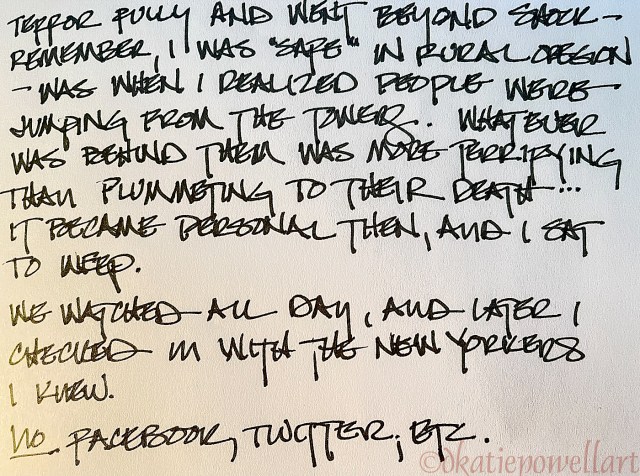 TERROR FULLY AND WENT BEYOND SHOCK —
REMEMBER, I WAS "SAFE" IN RURAL OREGON
— WAS WHEN I REALIZED PEOPLE WERE
JUMPING FROM THE TOWERS. WHATEVER
WAS BEHIND THEM WAS MORE TERRIFYING
THAN PLUMMETING TO THEIR DEATH...
IT BECAME PERSONAL THEN, AND I SAT
TO WEEP.
WE WATCHED ALL DAY, AND LATER I
CHECKED IN WITH THE NEW YORKERS
I KNEW.
NO FACEBOOK, TWITTER, ETC.
©dkatiepowellart